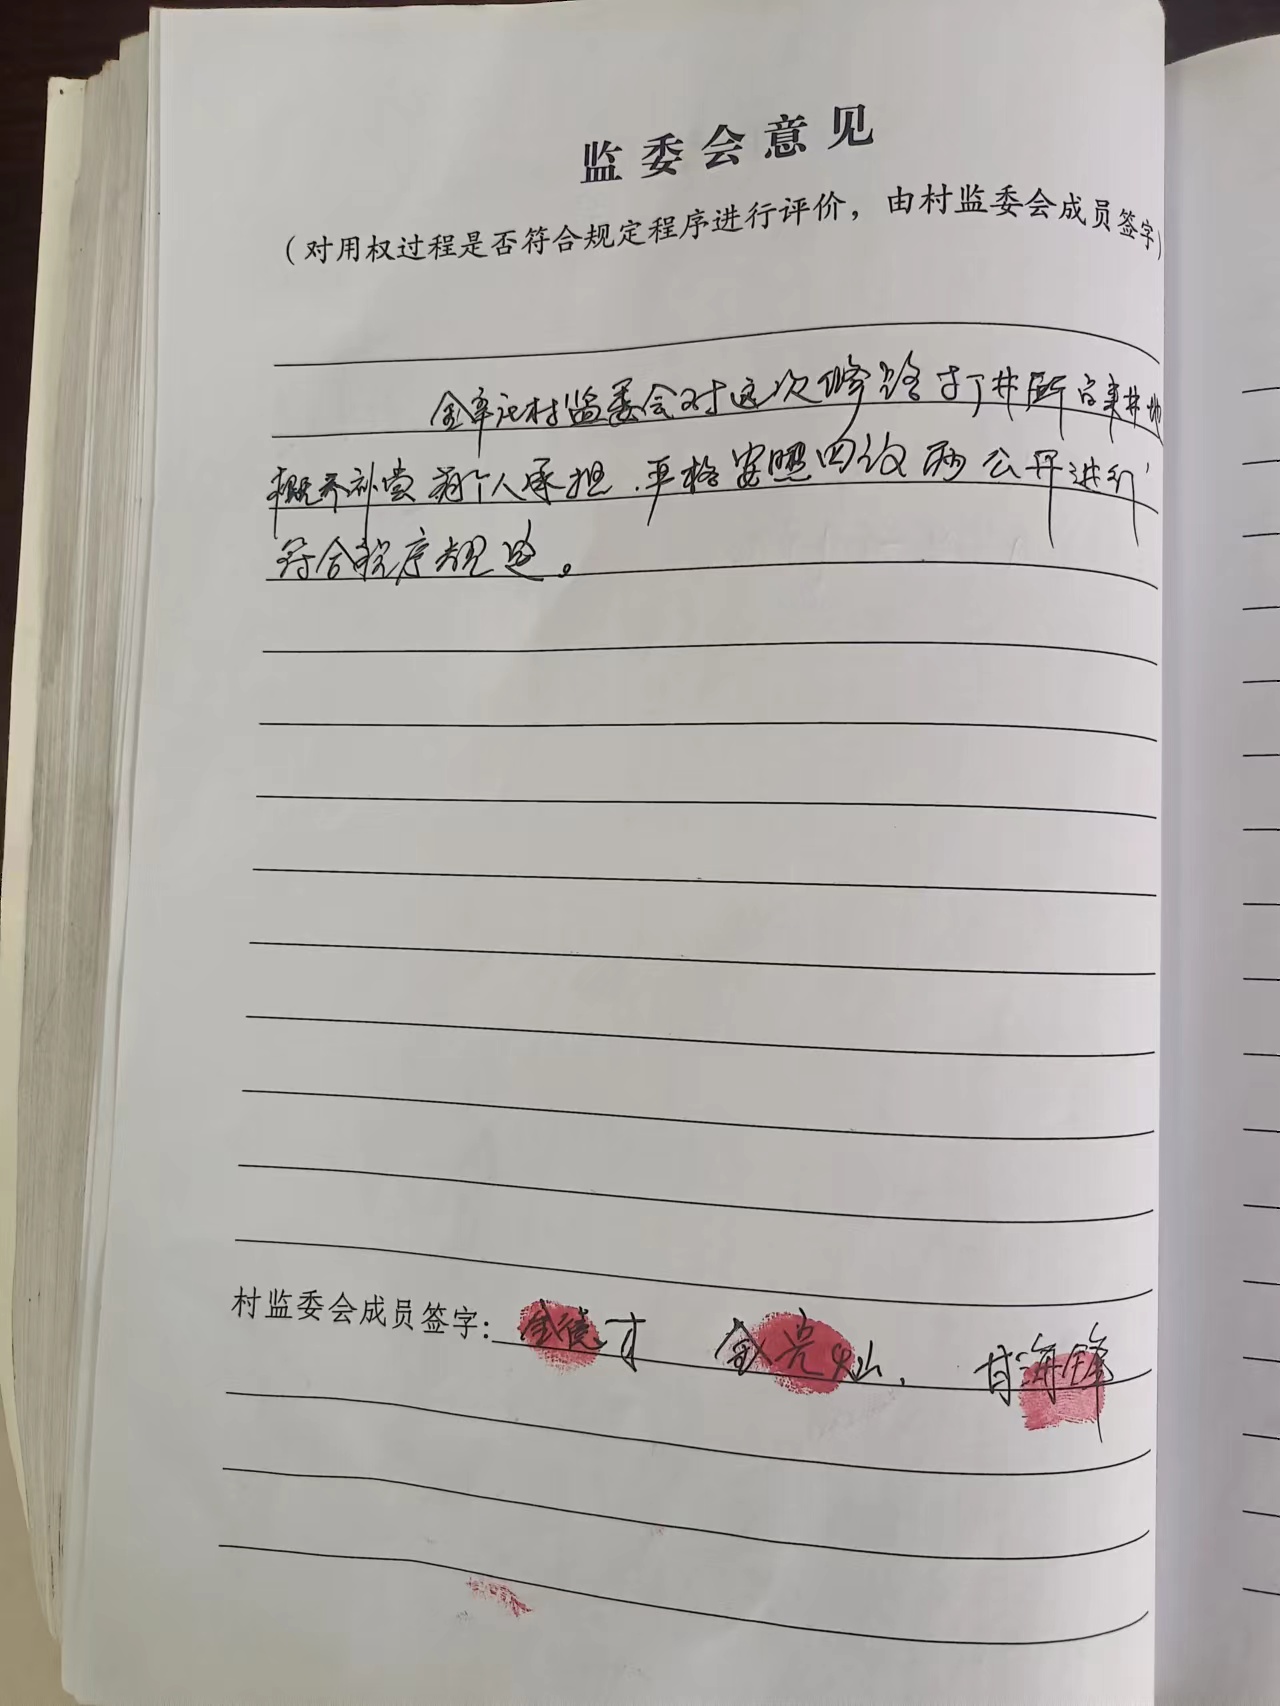 监委会意见
（对用权过程是否符合规定程序进行评价，由村监委会成员签字）
村监委会对这次修路打井所占耕地
概不补偿有个人承担.严格按照四议两公开进行,
符合程序规定。
村监委会成员签字: 金德才 金亮灿. 甘海锋